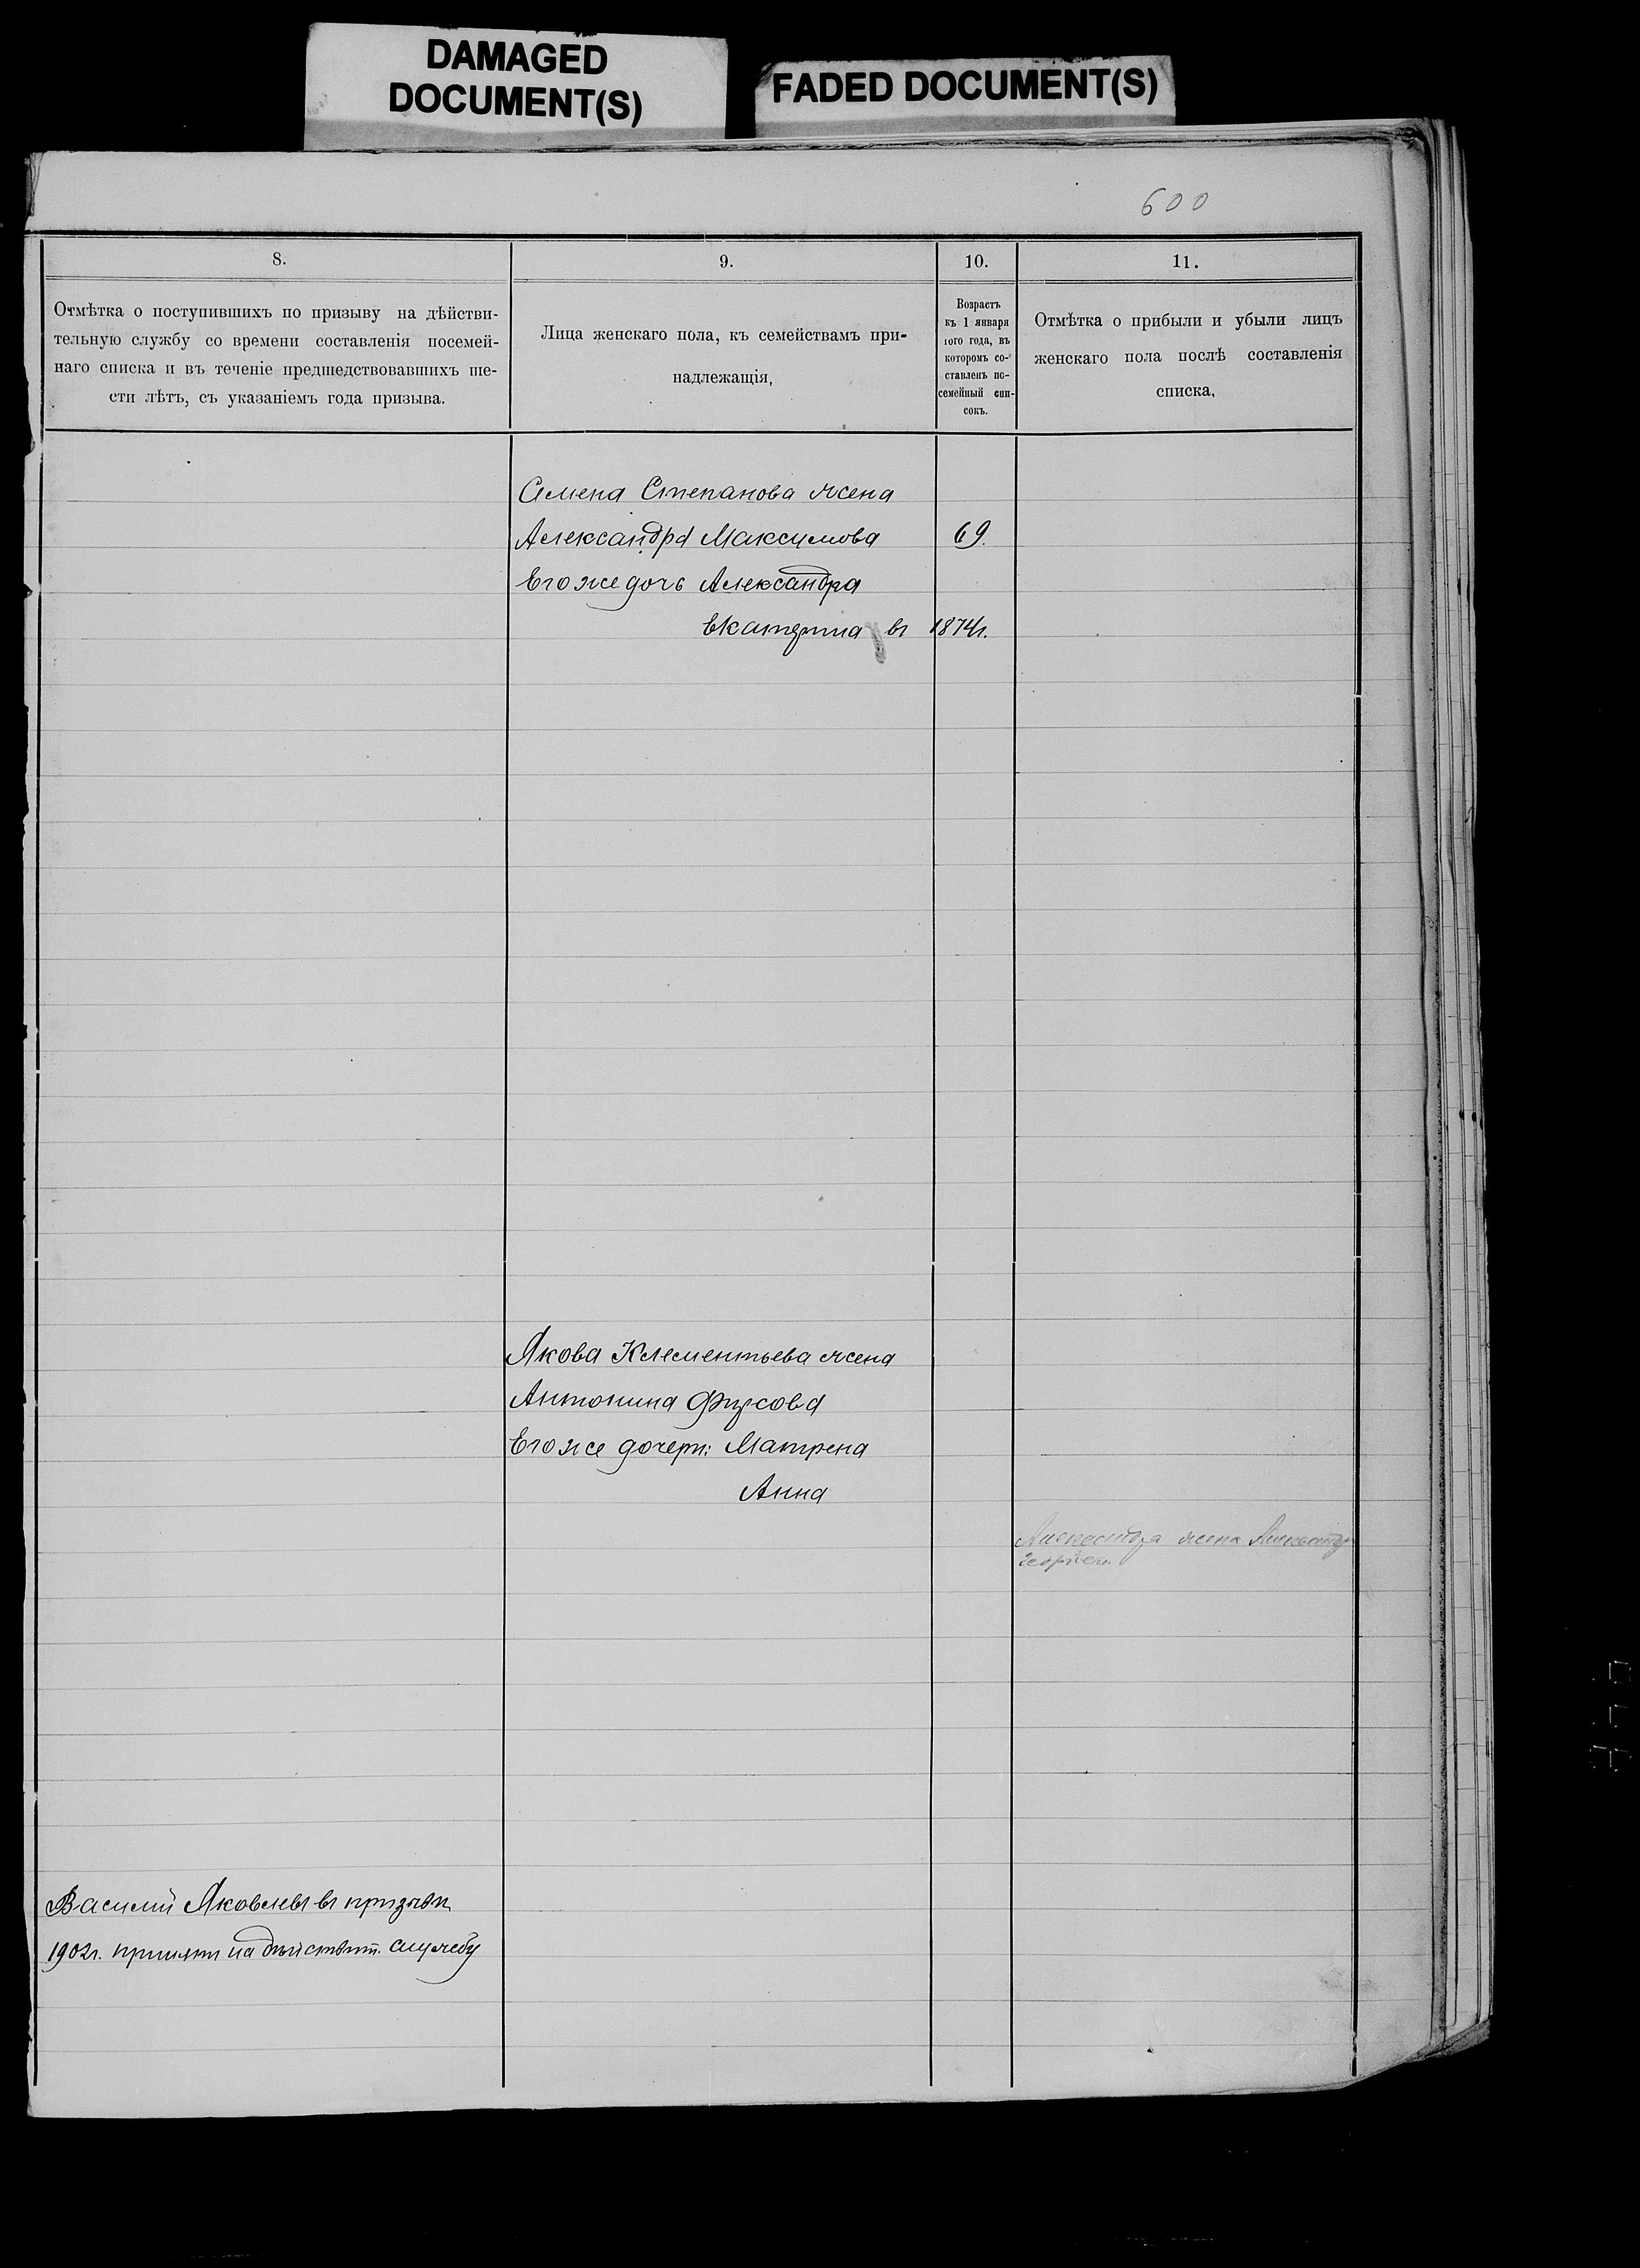 DAMAGED
DOCUMENT(S)
FADED DOCUMENT(S)
600
8.
9.
10.
11.
Отмѣтка о поступившихъ по призыву на дѣйстви-
тельную службу со времени составленія посемей-
наго списка и въ теченіе предшедствовавшихъ ше-
сти лѣтъ, съ указаніемъ года призыва.
Лица женскаго пола, къ семействамъ при-
надлежащія,
Возрастъ
къ 1 января
того года, въ
которомъ со-
ставленъ по-
семейный спи-
сокъ.
Отмѣтка о прибыли и убыли лицъ
женскаго пола послѣ составленія
списка,
Семена Степанова жена
Александра Максимова 69.
Его же дочь Александра
Екатерина въ 1874г.
Якова Клементьева жена
Антонина Фирсова
Его же дочери: Матрена
Анна
Александра жена
Василій Яковлевъ въ призывъ
1902г. принятъ на дѣйствит. службу